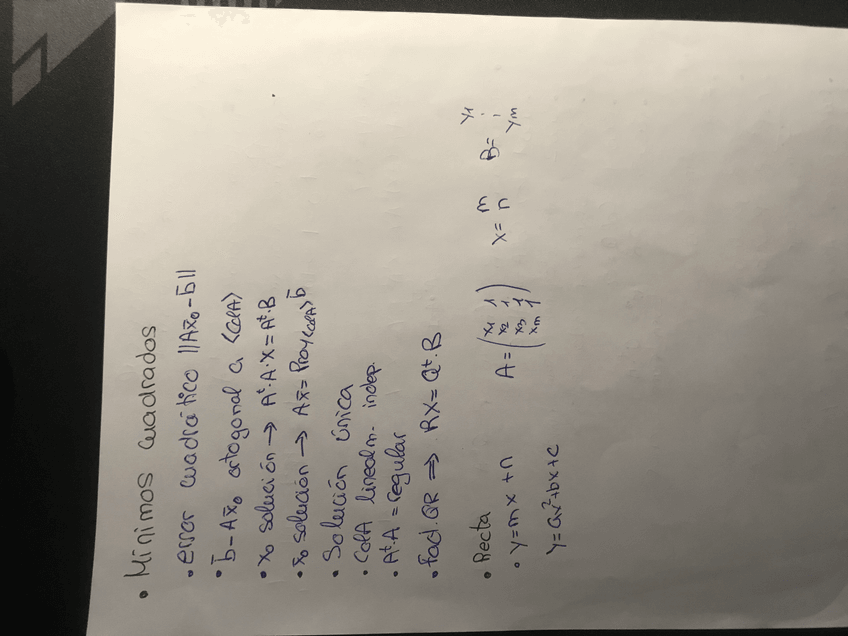 • Mínimos cuadrados
• error cuadrático ||Ax̄₀-b̄||
• b̄-Ax̄₀ ortogonal a <ColA>
• x₀ solución → Aᵗ·A·X=Aᵗ·B
• x̄₀ solución → Ax̄=Proy<ColA> b̄
• Solución única
• ColA linealm. indep.
• AᵗA = regular
• Fact.QR ⇒ RX=Qᵗ·B
• Recta
• y=mx+n A=(x₁ 1 x₂ 1 x₃ 1 xm 1) x= m n B= y₁ ⋮ ym
y=ax²+bx+c